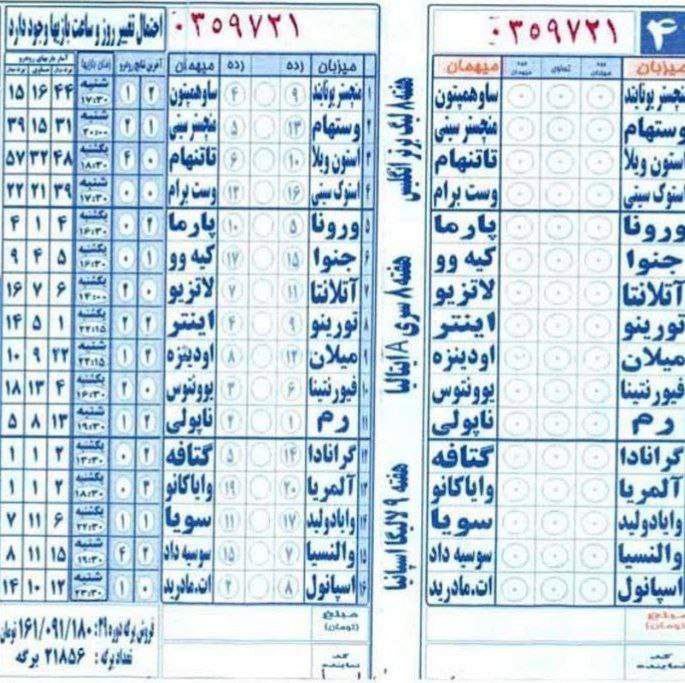 ۴ ۰۳۵۹۷۲۱
میزبان میهمان
منچستر یونایتد ساوهمپتون
وستهام منچستر سیتی
استون ویلا تاتنهام
استوک سیتی وست برام
ورونا پارما
جنوا کیه وو
آتلانتا لاتزیو
تورینو اینتر
میلان اودینزه
فیورنتینا یوونتوس
رم ناپولی
گرانادا گتافه
آلمریا وایاکانو
وایادولید سویا
والنسیا سوسیه داد
اسپانول ات.مادرید
مبلغ (تومان)
کد نماینده
هفته ۸ لیگ برتر انگلیس
هفته ۸ سری A ایتالیا
هفته ۹ لالیگا اسپانیا
۰۳۵۹۷۲۱
احتمال تغییر روز و ساعت بازیها وجود دارد
میزبان رده رده میهمان آخرین نتایج رودررو زمان بازیها
۱ منچستر یونایتد ۹ ۴ ساوهمپتون ۲ ۱ شنبه ۱۷:۳۰ ۴۴ ۱۶ ۱۵
۲ وستهام ۱۳ ۵ منچستر سیتی ۱ ۲ شنبه ۲۰:۰۰ ۳۱ ۱۵ ۳۹
۳ استون ویلا ۱۰ ۶ تاتنهام ۰ ۴ یکشنبه ۱۸:۳۰ ۴۸ ۳۲ ۵۷
۴ استوک سیتی ۱۶ ۱۲ وست برام ۰ ۰ شنبه ۱۷:۳۰ ۳۹ ۲۱ ۲۲
۵ ورونا ۵ ۱۰ پارما ۲ ۰ یکشنبه ۱۶:۳۰ ۴ ۱ ۴
۶ جنوا ۱۵ ۱۷ کیه وو ۱ ۰ یکشنبه ۱۶:۳۰ ۵ ۴ ۹
۷ آتلانتا ۱۱ ۷ لاتزیو ۰ ۲ یکشنبه ۱۴:۰۰ ۶ ۷ ۱۶
۸ تورینو ۹ ۴ اینتر ۲ ۲ یکشنبه ۲۲:۱۵ ۱ ۵ ۱۴
۹ میلان ۱۲ ۸ اودینزه ۲ ۱ شنبه ۲۲:۱۵ ۲۲ ۹ ۱۰
۱۰ فیورنتینا ۶ ۳ یوونتوس ۰ ۲ یکشنبه ۱۶:۳۰ ۴ ۱۳ ۱۸
۱۱ رم ۱ ۲ ناپولی ۲ ۱ شنبه ۱۹:۳۰ ۱۳ ۸ ۵
۱۲ گرانادا ۱۴ ۵ گتافه ۲ ۰ یکشنبه ۱۳:۳۰ ۱ ۱ ۲
۱۳ آلمریا ۲۰ ۱۹ وایاکانو یکشنبه ۱۸:۳۰ ۱ ۱ ۲
۱۴ وایادولید ۱۷ ۱۱ سویا ۱ ۱ یکشنبه ۲۲:۳۰ ۶ ۱۱ ۷
۱۵ والنسیا ۷ ۱۵ سوسیه داد ۲ ۴ شنبه ۱۹:۳۰ ۱۵ ۱۱ ۸
۱۶ اسپانول ۸ ۲ ات.مادرید ۰ ۱ شنبه ۲۳:۳۰ ۱۲ ۱۰ ۱۴
مبلغ (تومان)
کد نماینده
فروش برگه دوره ۲۹: ۱۶۱/۰۹۱/۱۸۰ تومان
تعداد برگه: ۲۱۸۵۶ برگه